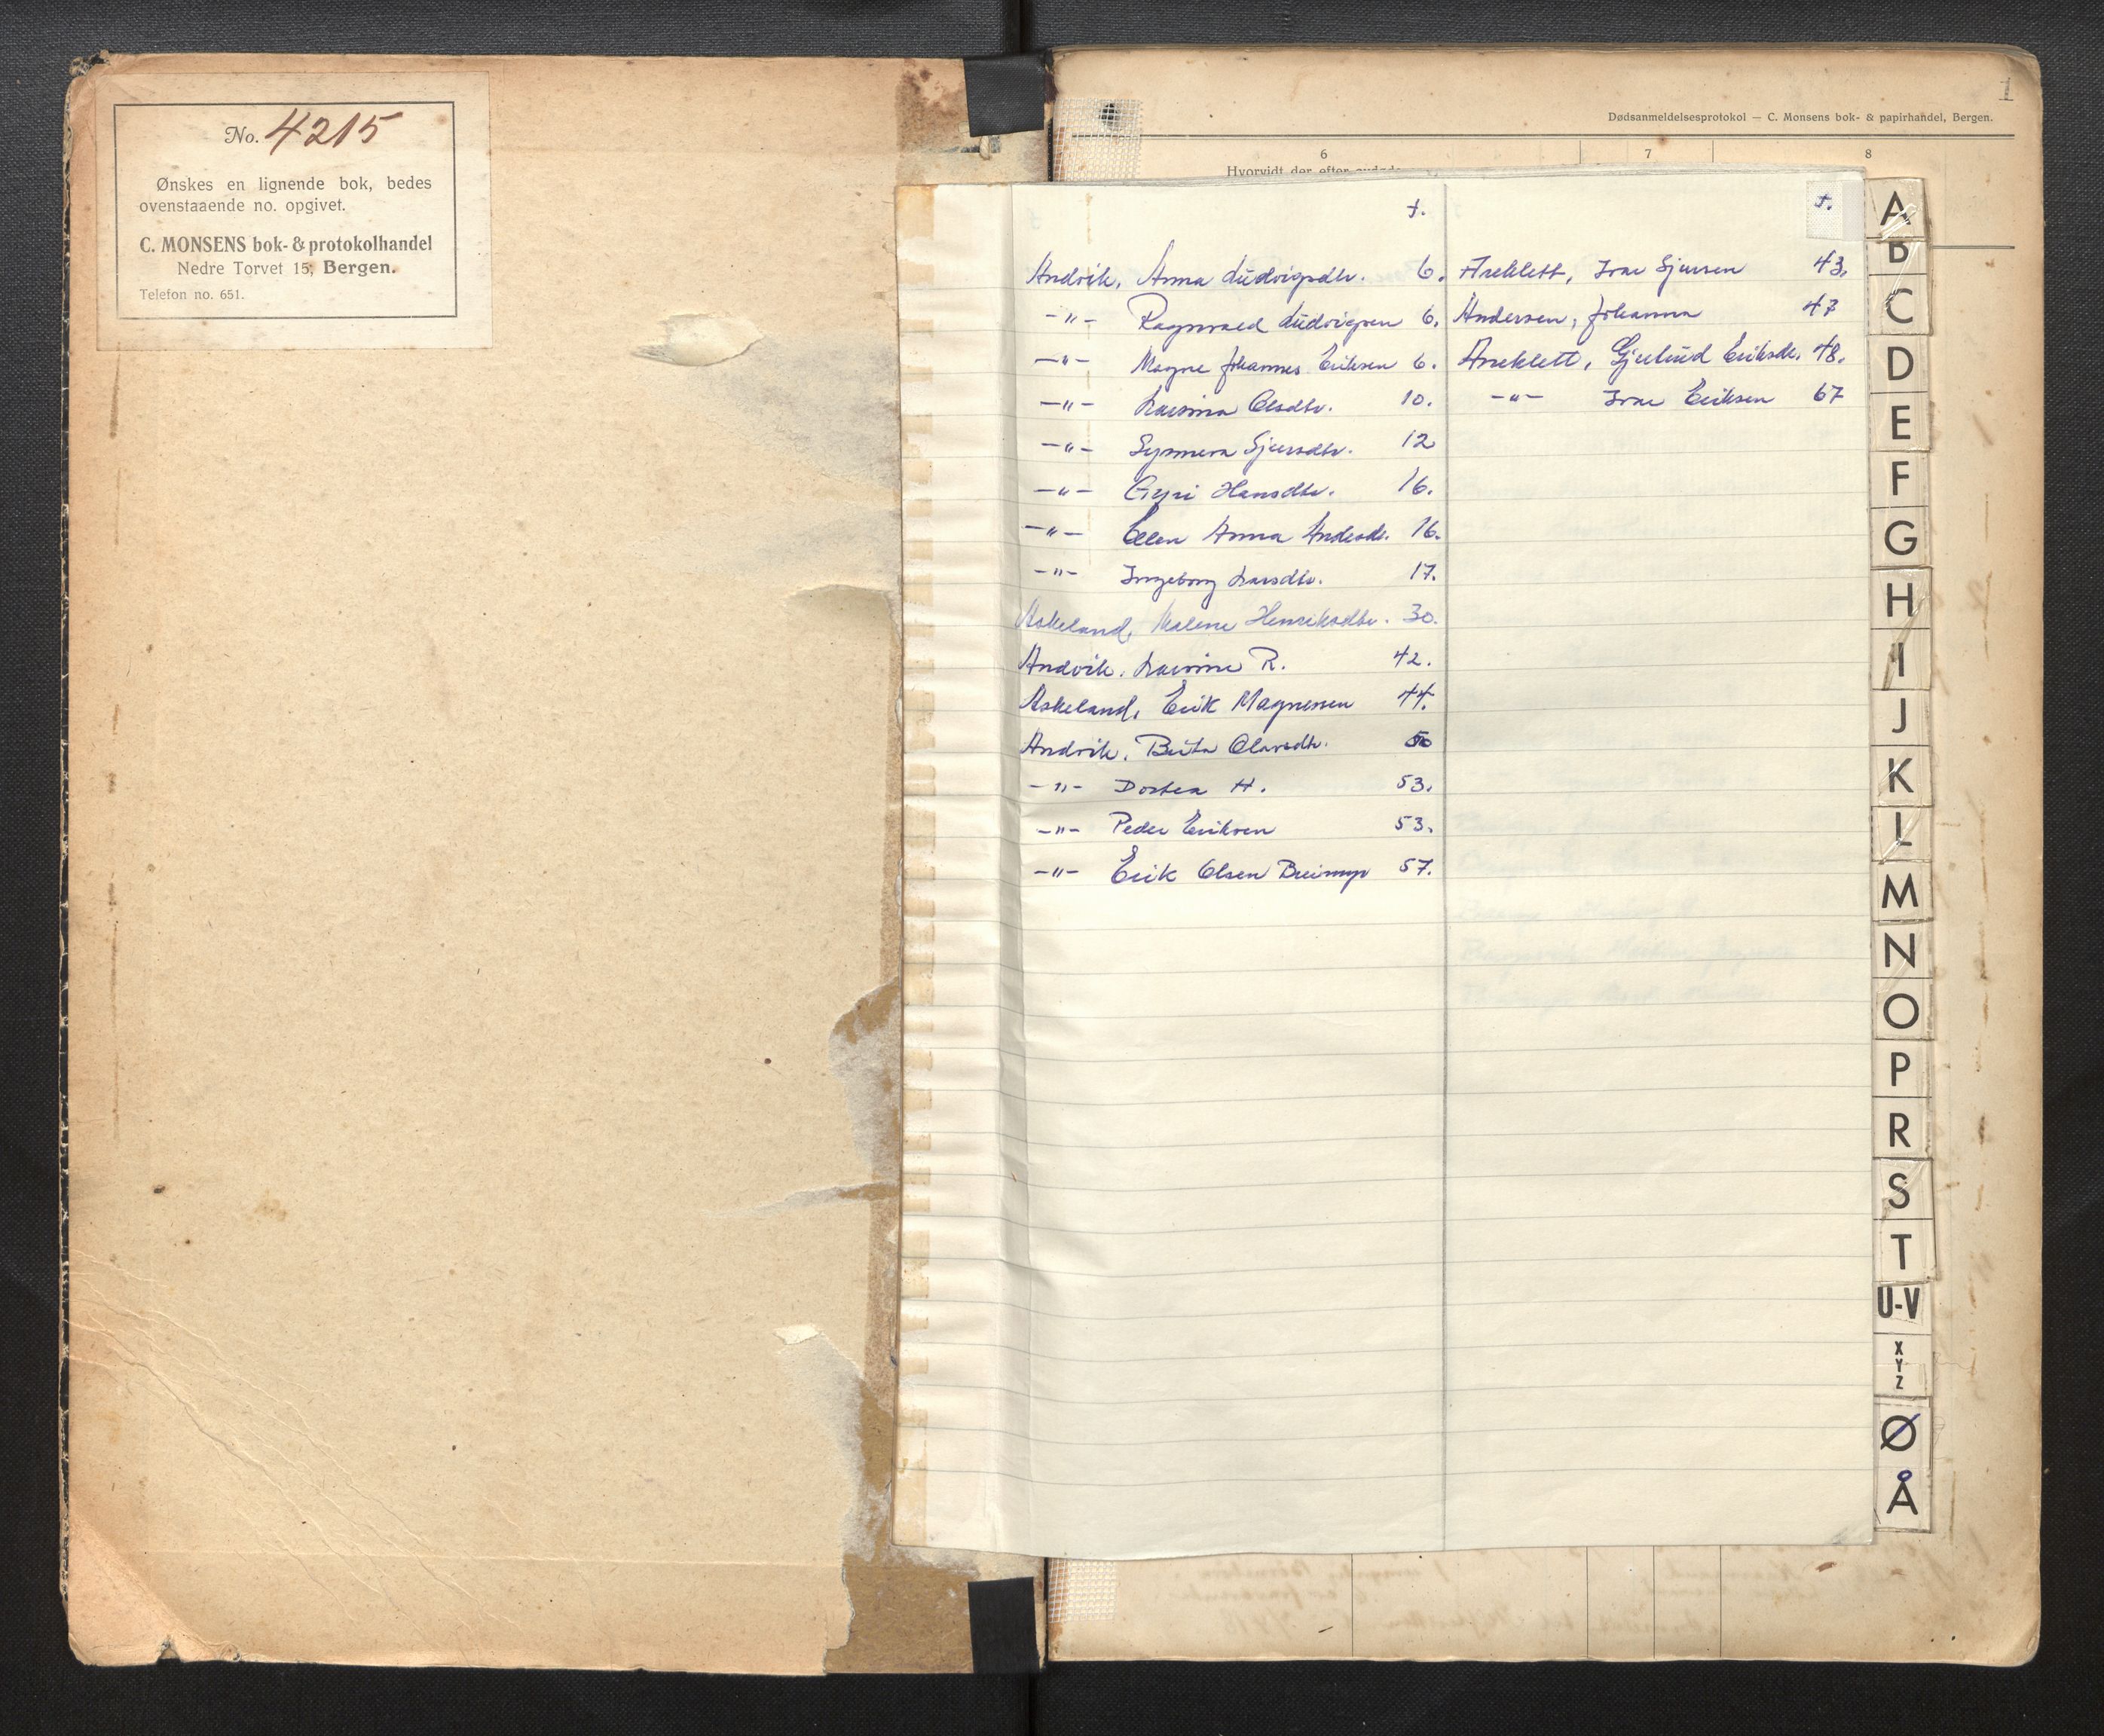 No. 4215
Ønskes en lignende bok, bedes
ovenstaaende no. opgivet.
C. MONSENS bok- & protokolhandel
Nedre Torvet 15, Bergen.
Telefon no. 651.
1
Dødsanmeldelsesprotokol — C. Monsens bok- & papirhandel, Bergen.
6 7 8
Hvorvidt der efter avdøde
f.
Andvik, Anna Ludvigsdtr. 6.
-"- Ragnvald Ludvigsen 6.
-"- Magne Johannes Eriksen 6.
-"- Lavina Olsdtr. 10.
-"- Synneva Sjursdtr. 12
-"- Gyri Hansdtr. 16.
-"- Ellen Anna Andersd. 16.
-"- Ingeborg Larsdtr. 17.
Askeland, Malene Henriksdtr. 30.
Andvik, Lavine R. 42.
Askeland, Erik Magnesen 44.
Andvik, Brita Olavsdtr. 50
-"- Dortea H. 53.
-"- Peder Eriksen 53.
-"- Erik Olsen 57.
f.
Areklett, Ivar Sjursen 43.
Andersen, Johanna 47
Areklett, Gjertrud Eriksdr. 48.
-"- Ivar Eriksen 67
A
B
C
D
E
F
G
H
I
J
K
L
M
N
O
P
R
S
T
U-V
X
Y
Z
Ø
Å